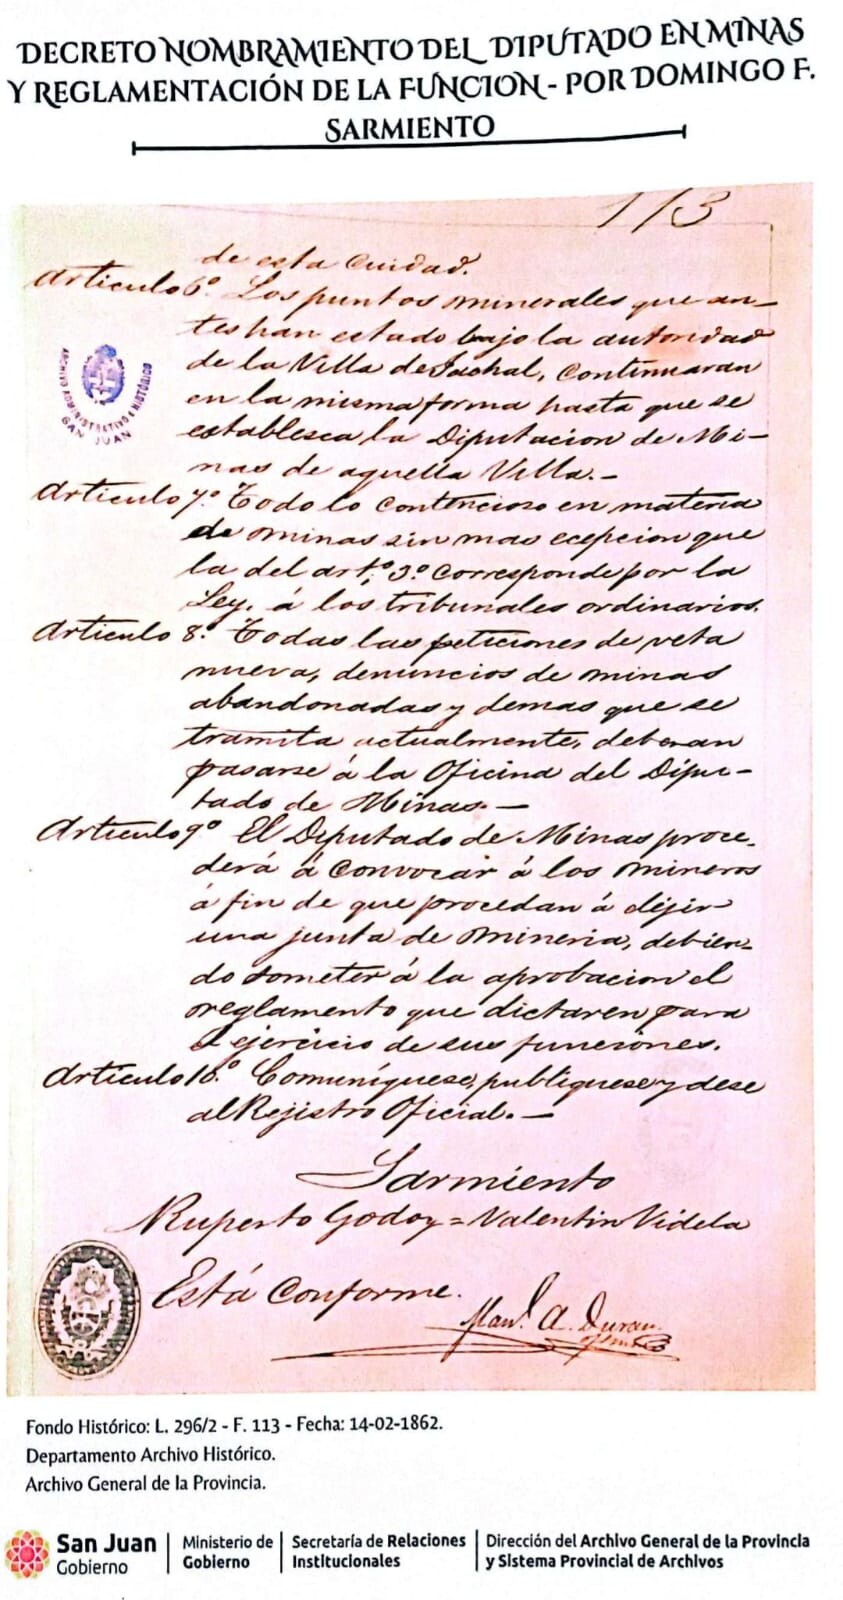 DECRETO NOMBRAMIENTO DEL DIPUTADO EN MINAS
Y REGLAMENTACIÓN DE LA FUNCION - POR DOMINGO F.
SARMIENTO
113
de esta Cuidad.
Articulo 6º Los puntos minerales que an-
tes han estado bajo la autoridad
de la Villa de Jachal, continuaran
en la misma forma hasta que se
establesca la Diputacion de Mi-
nas de aquella Villa.-
Articulo 7º Todo lo contencioso en materia
de minas sin mas ecepcion que
la del artº 3º corresponde por la
Ley, á los tribunales ordinarios.
Articulo 8º Todas las peticiones de veta
nueva, denuncios de minas
abandonadas y demas que se
tramita actualmente, deberan
pasarse á la Oficina del Dipu-
tado de Minas.-
Articulo 9º El Diputado de Minas proce-
derá á convocar á los mineros
á fin de que procedan á elejir
una junta de mineria, debien-
do someter á la aprobacion el
reglamento que dictaren para
el ejercicio de sus funciones.
Articulo 10º Comuníquese, publiquese y dese
al Rejistro Oficial.-
Sarmiento
Ruperto Godoy = Valentin Videla
Está Conforme.
Manl. A. Duran
ARCHIVO ADMINISTRATIVO E HISTÓRICO
SAN JUAN
Fondo Histórico: L. 296/2 - F. 113 - Fecha: 14-02-1862.
Departamento Archivo Histórico.
Archivo General de la Provincia.
San Juan
Gobierno
Ministerio de
Gobierno
Secretaría de Relaciones
Institucionales
Dirección del Archivo General de la Provincia
y Sistema Provincial de Archivos